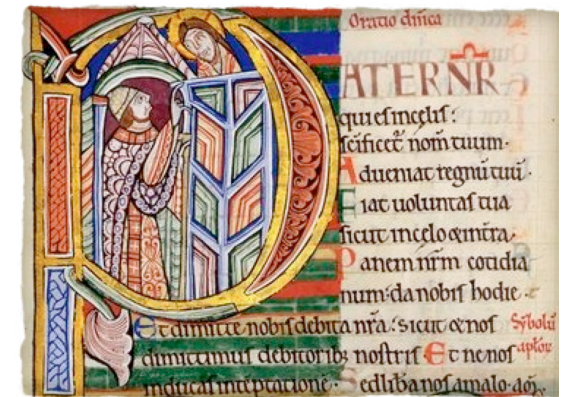 Oratio dñica
PATER NR̄
qui es in celis:
sc̄ificet̄ nom̄ tuum·
Adueniat regnū tuū·
Fiat uoluntas tua
sicut in celo & in t̄ra·
Panem nr̄m cotidia
num· da nobis hodie·
Et dimitte nobis debita nr̄a· sicut & nos
Sẏbolū
dimittimus debitorib; nostris Et ne nos
aplōr
inducas in tēptatione· Sed lib̄a nos a malo· am̄